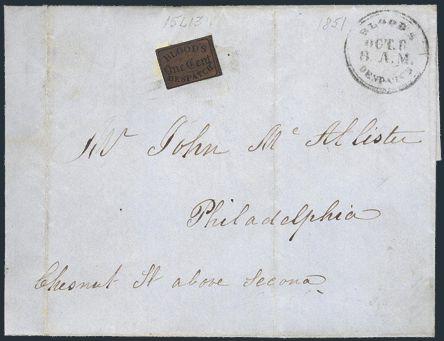 15L13
1851
BLOOD'S
One Cent
DESPATCH
BLOOD'S
OCT. 6
8 A.M.
DESPATCH
Mr John McAllister
Philadelphia
Chesnut St above Second